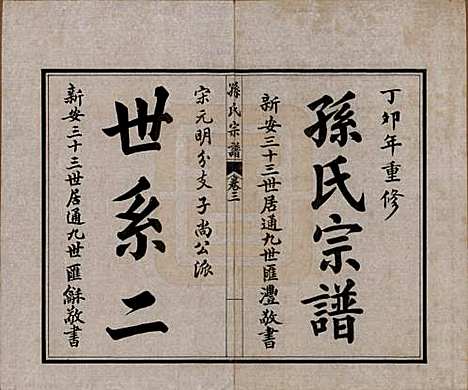 丁卯年重修
孫氏宗譜
新安三十三世居通九世匯灃敬書
孫氏宗譜 卷三 一
宋元明分支子尚公派
世系二
新安三十三世居通九世匯龢敬書